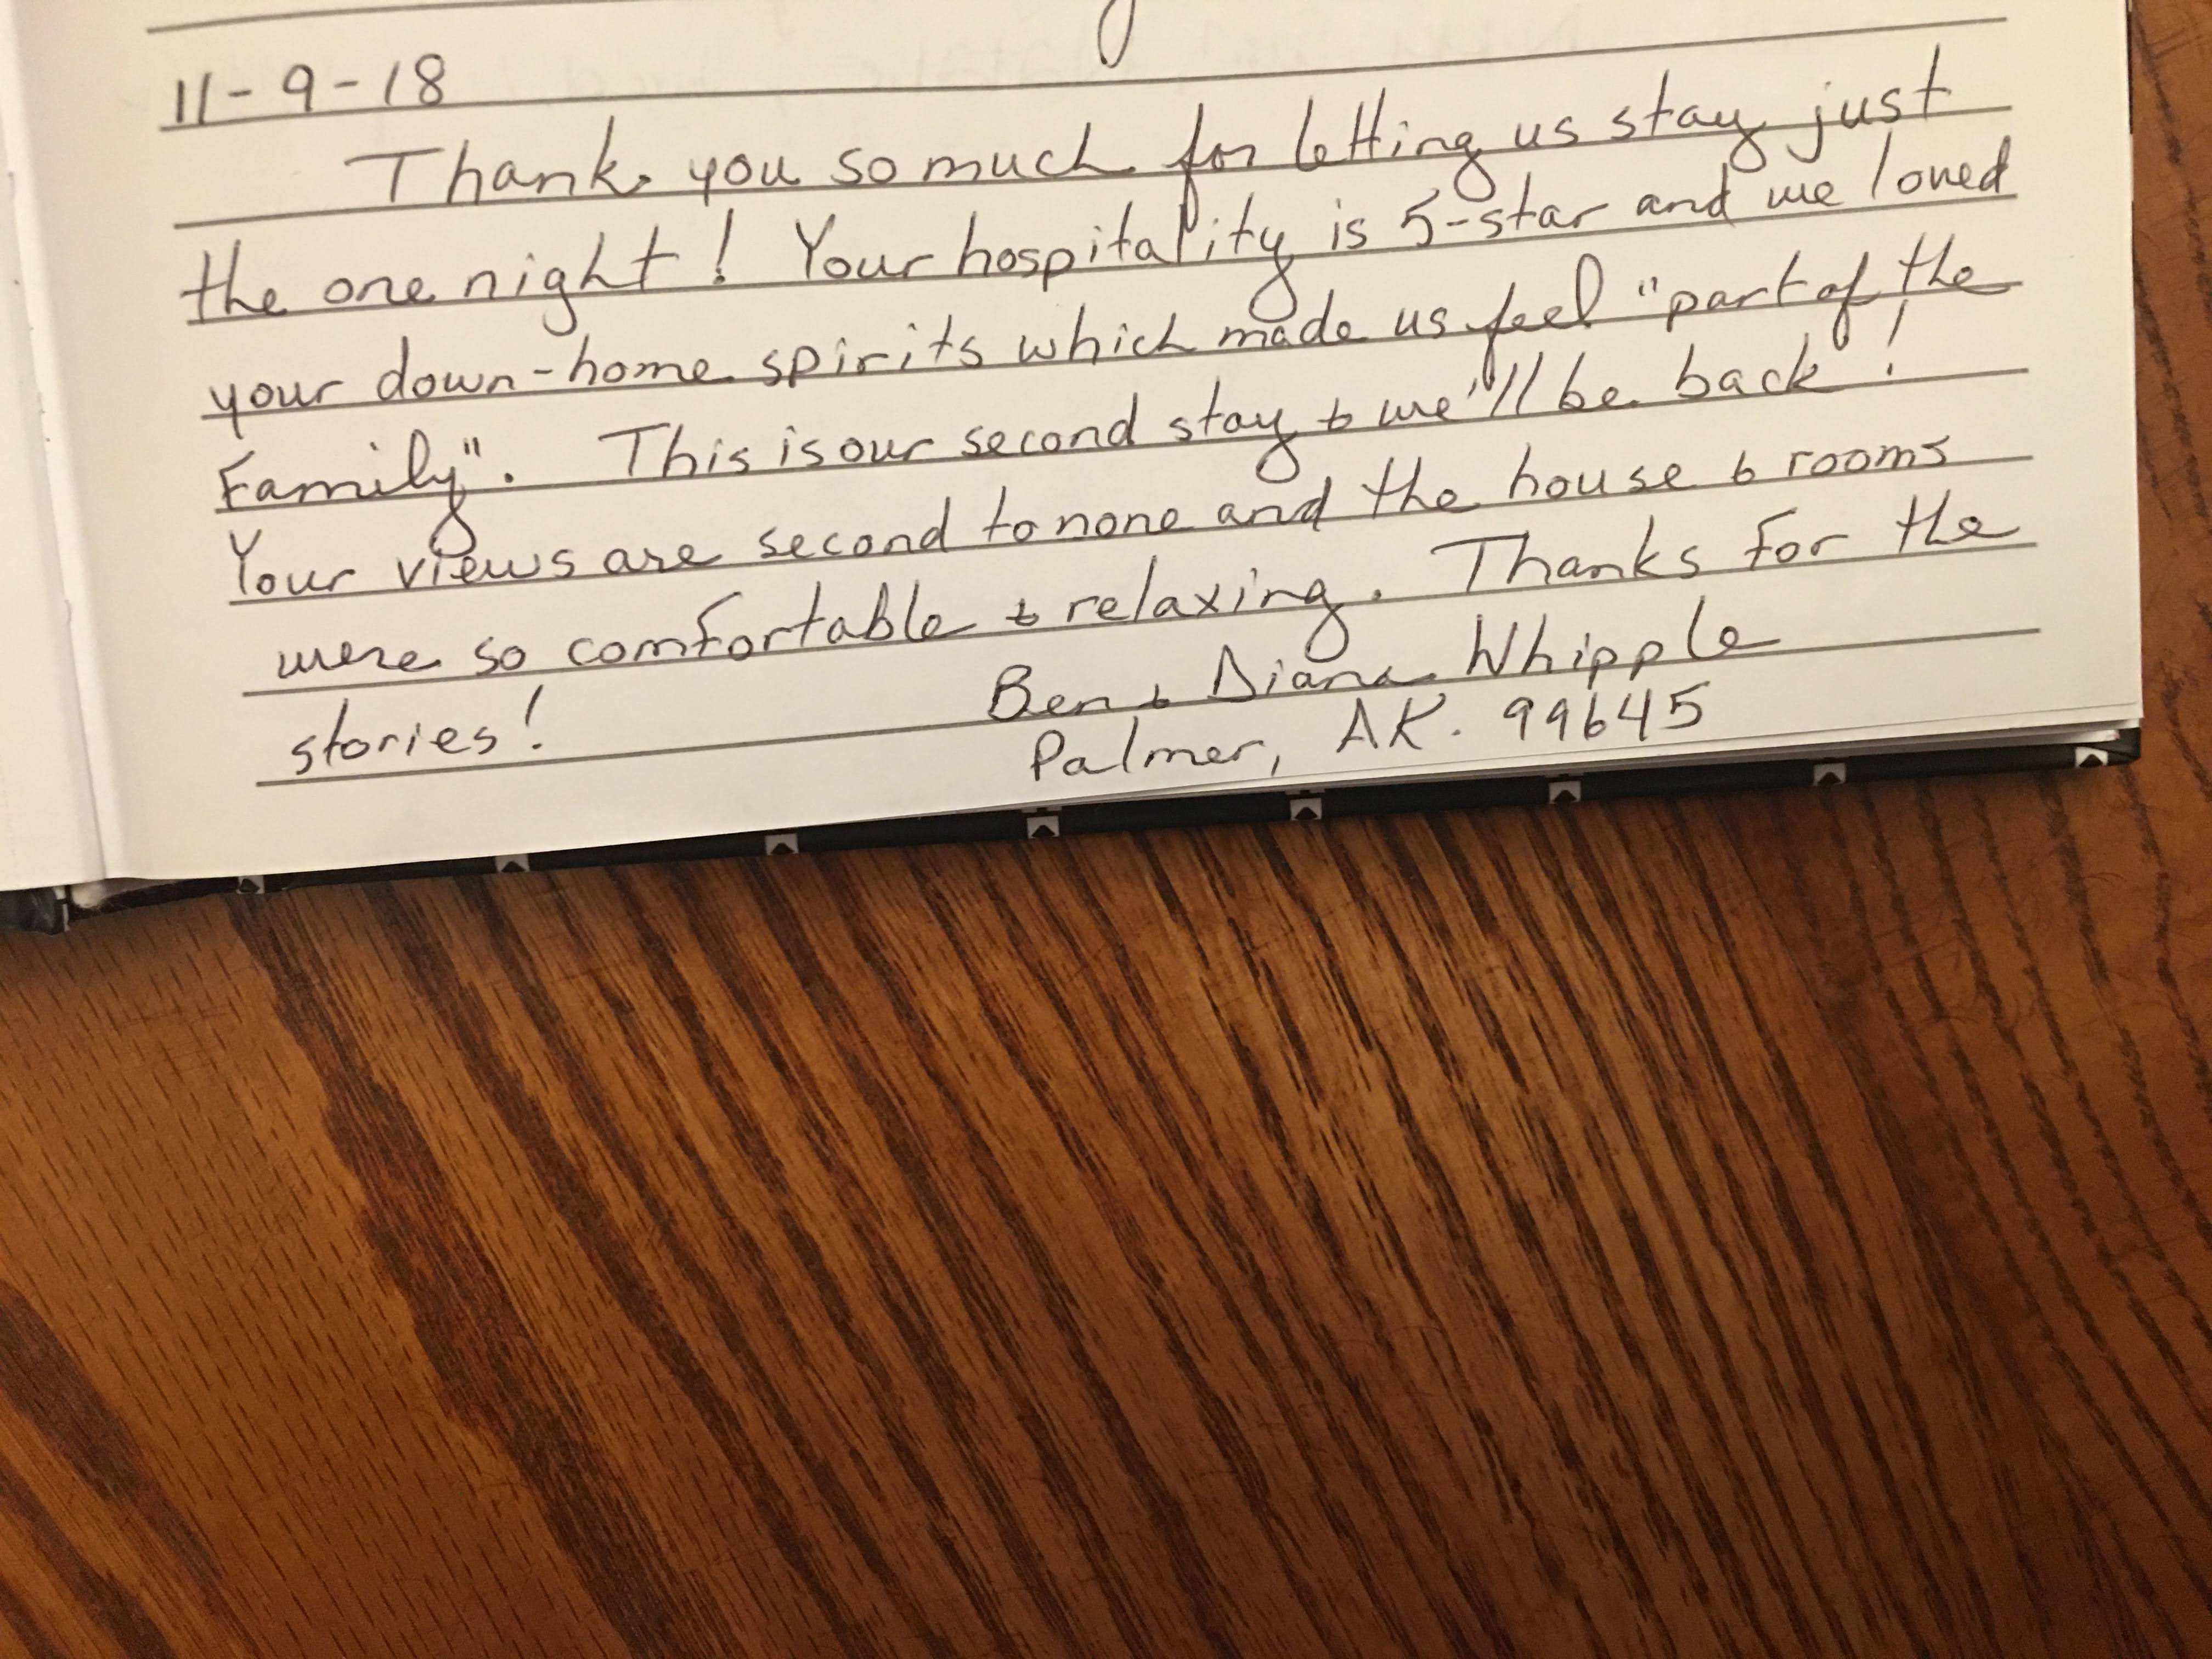 11-9-18
Thank you so much for letting us stay just
the one night! Your hospitality is 5-star and we loved
your down-home spirits which made us feel "part of the
Family". This is our second stay & we'll be back!
Your views are second to none and the house & rooms
were so comfortable & relaxing. Thanks for the
stories!
Ben & Diana Whipple
Palmer, AK. 99645